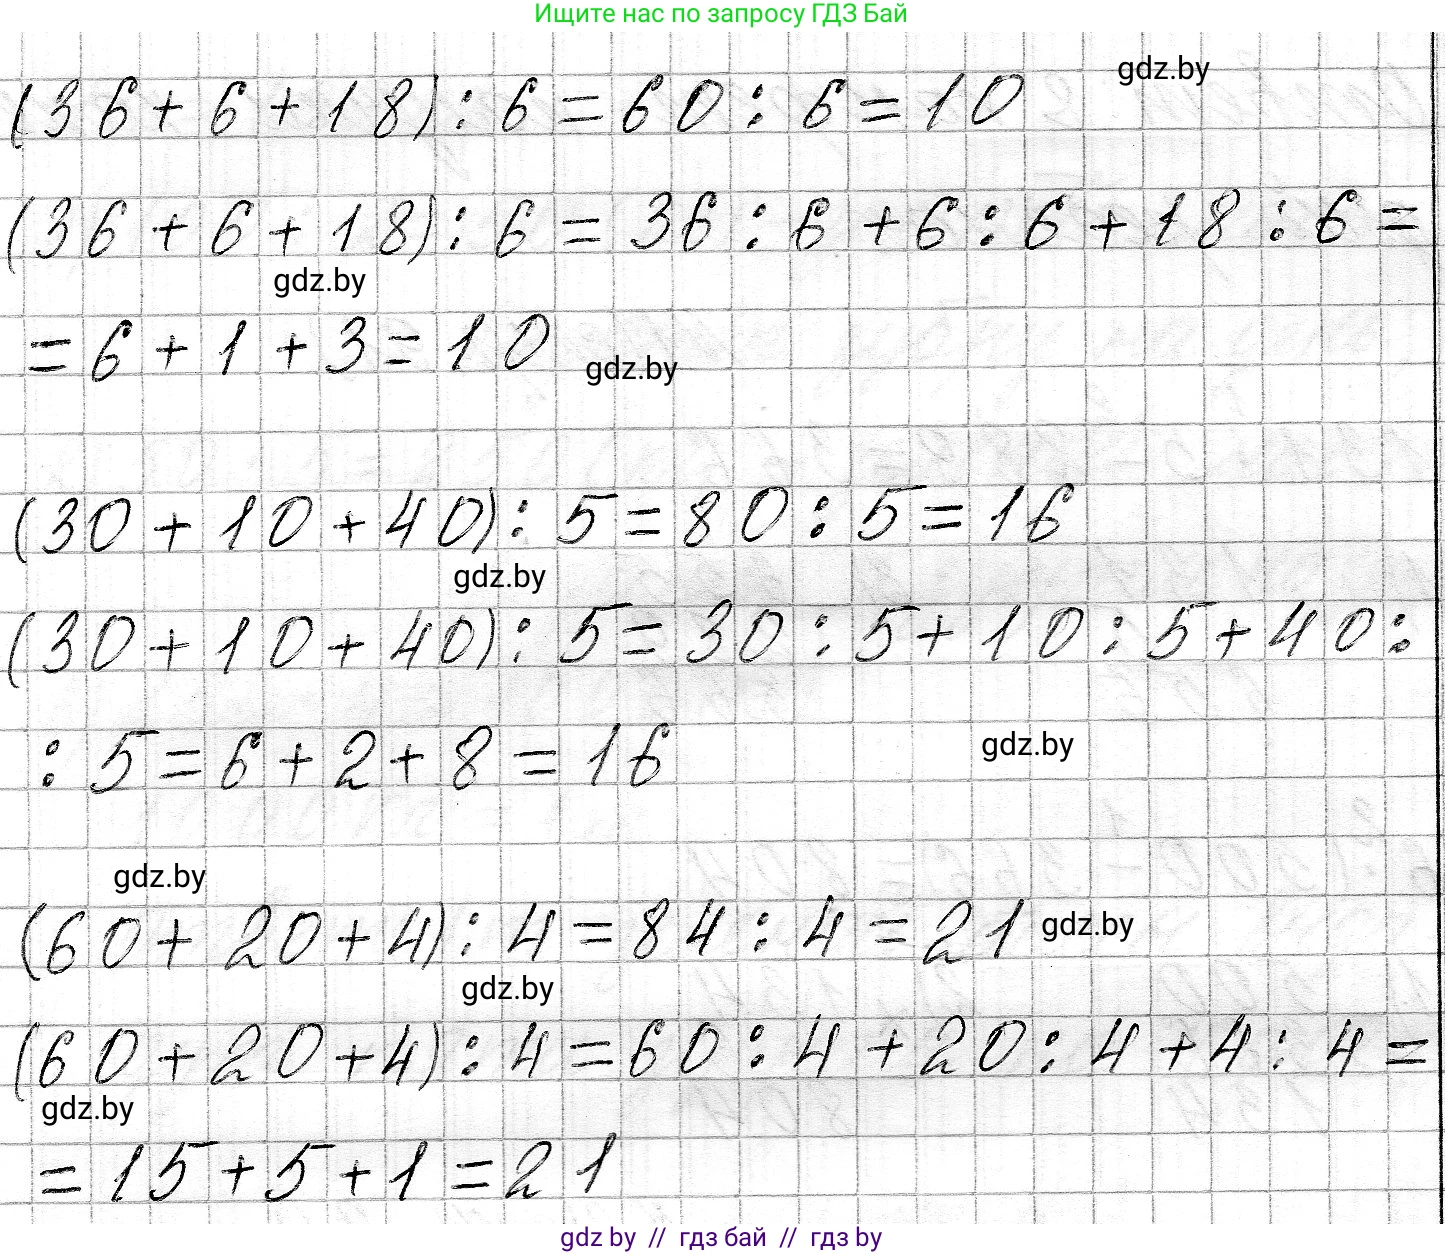 Ищите нас по запросу ГДЗ Бай
gdz.by
(36+6+18):6=60:6=10
(36+6+18):6=36:6+6:6+18:6=
gdz.by
=6+1+3=10
gdz.by
(30+10+40):5=80:5=16
gdz.by
(30+10+40):5=30:5+10:5+40:
:5=6+2+8=16
gdz.by
gdz.by
(60+20+4):4=84:4=21
gdz.by
gdz.by
(60+20+4):4=60:4+20:4+4:4=
gdz.by
=15+5+1=21
gdz by // гдз бай // гдз by